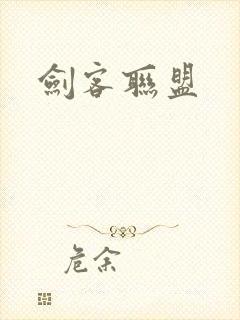 劍客聯盟
危余